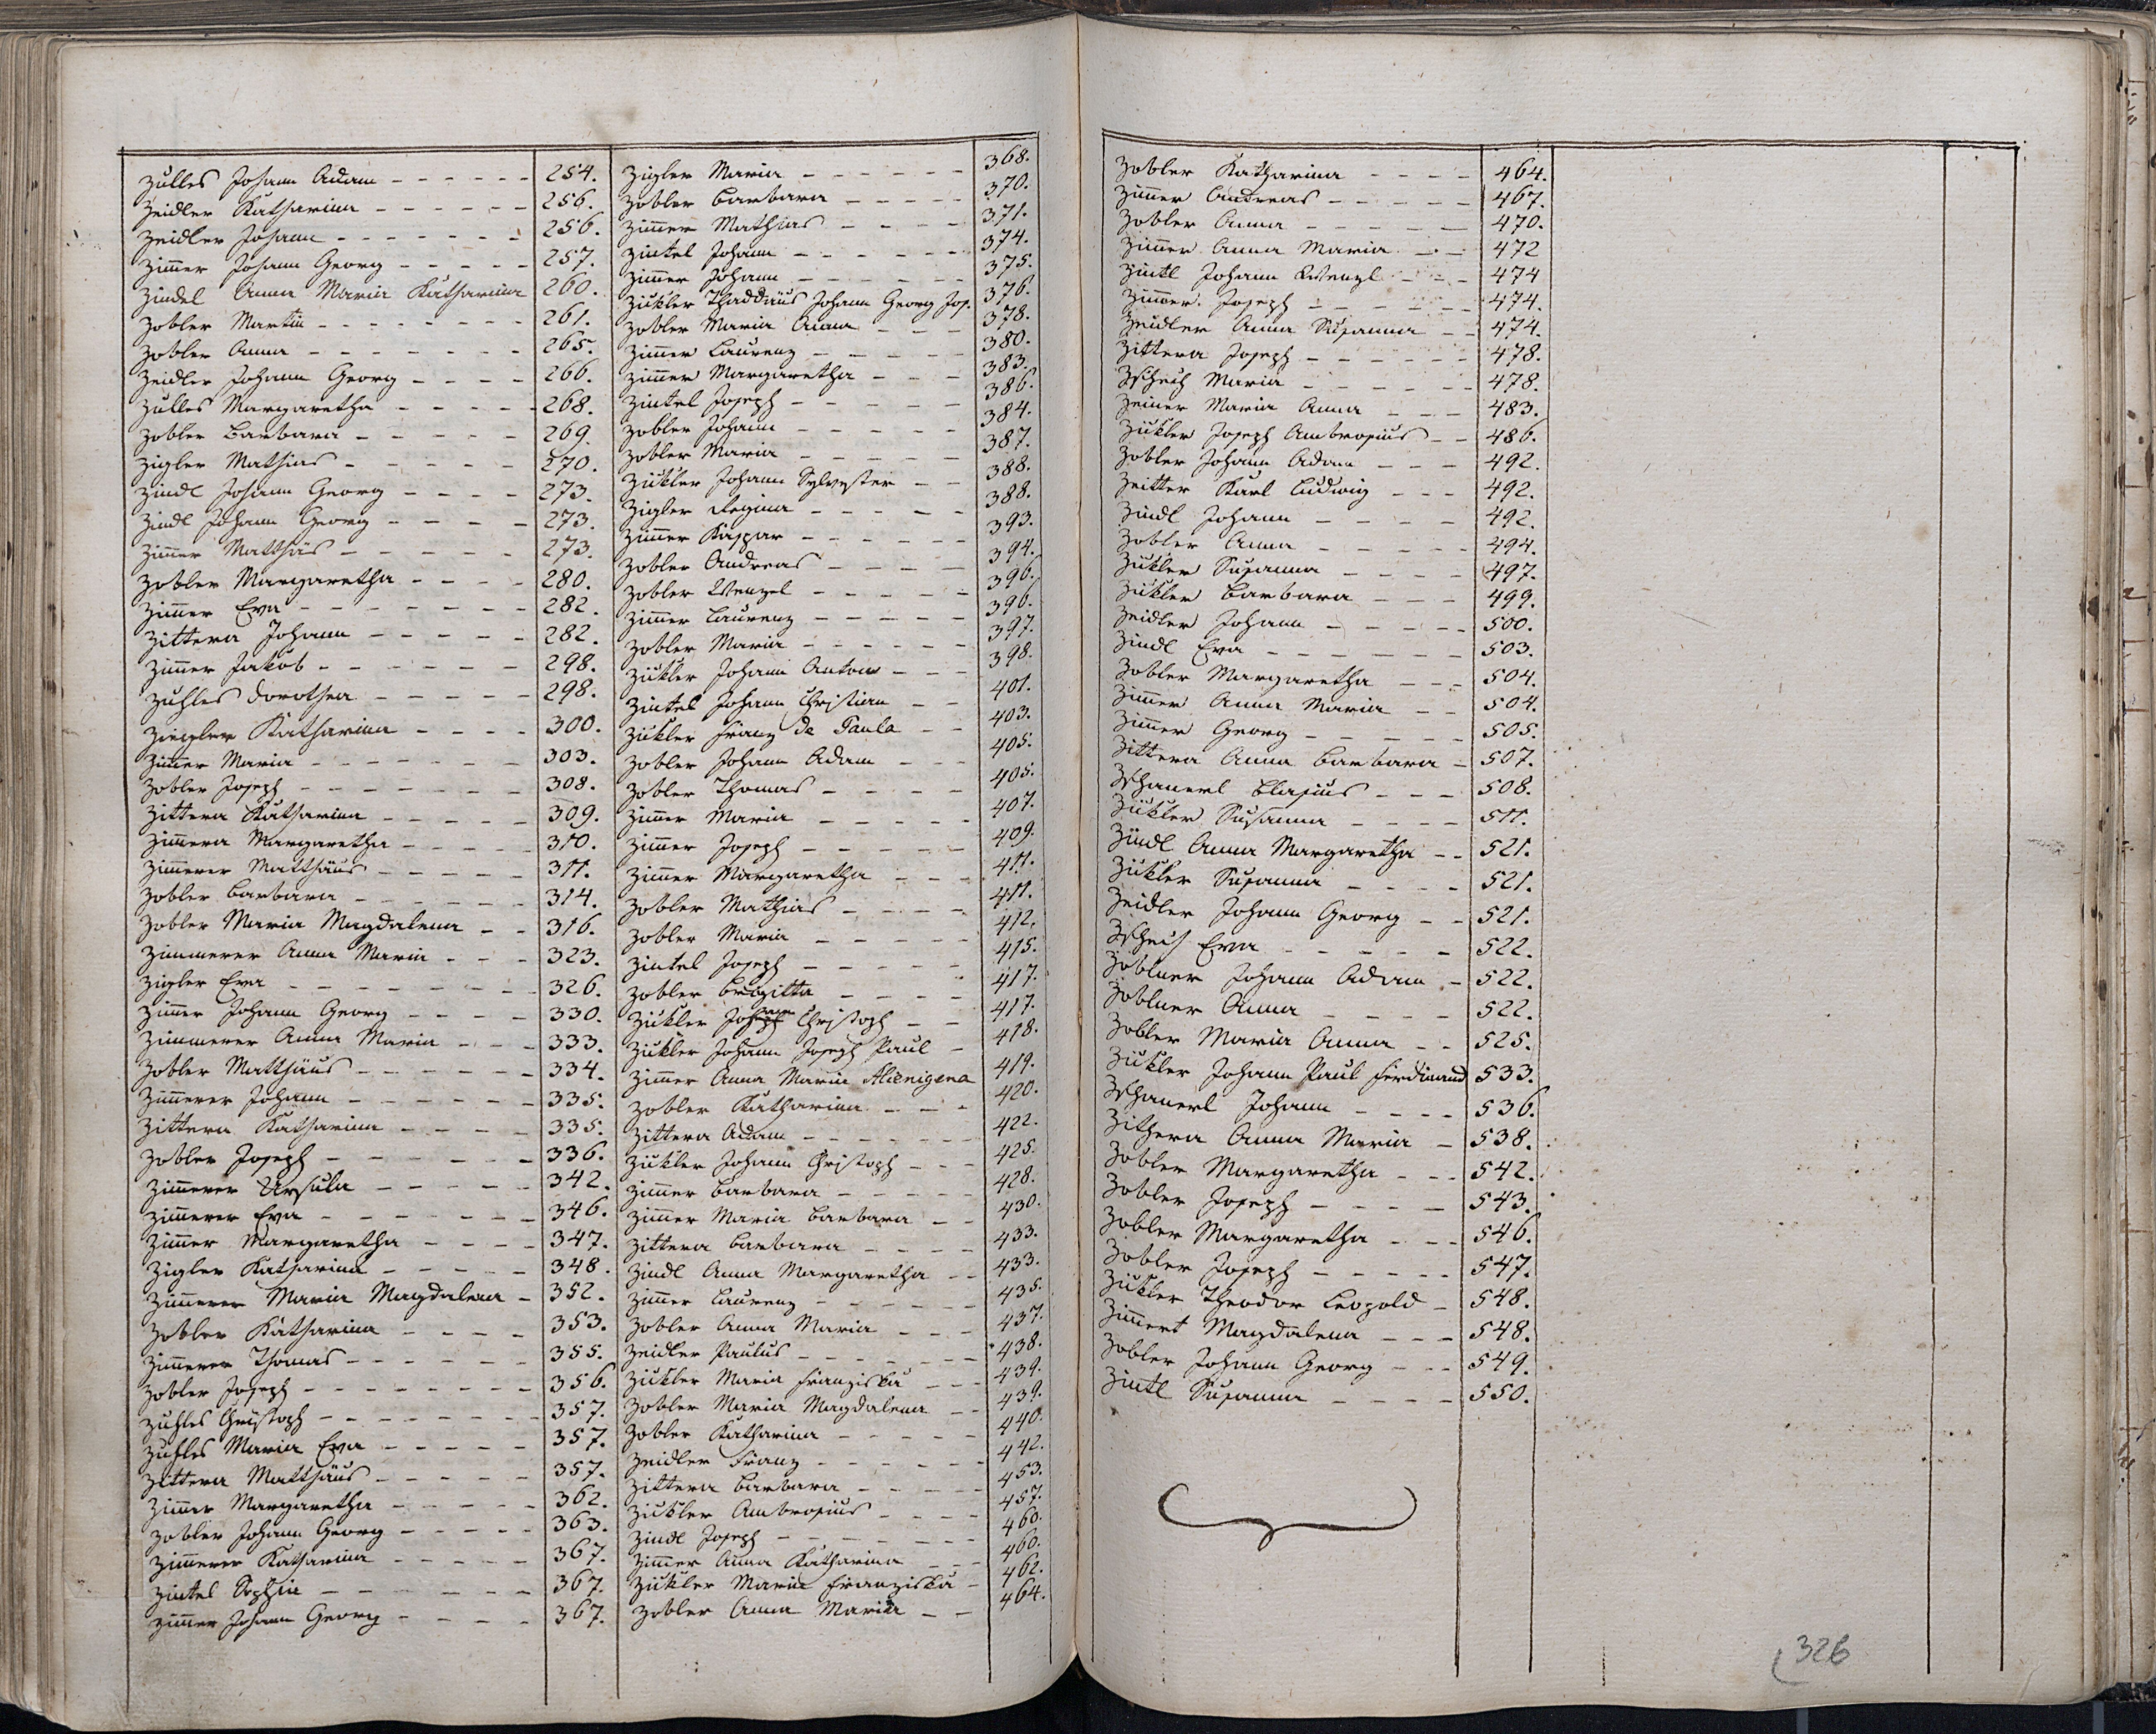 Zulles Johann Adam - - - - - - 254.
Zeidler Katharina - - - - - - 256.
Zeidler Johann - - - - - - - 256.
Zimer Johann Georg - - - - - 257.
Zindel Anna Maria Katharina 260.
Zobler Martin - - - - - - - 261.
Zobler Anna - - - - - - - 265.
Zeidler Johann Georg - - - - 266.
Zulles Margaretha - - - - - 268.
Zobler Barbara - - - - - - 269.
Zigler Mathias - - - - - - 270.
Zindl Johann Georg - - - - 273.
Zindl Johann Georg - - - - 273.
Zimer Matthäs - - - - - - 273.
Zobler Margaretha - - - - 280.
Zimer Eva - - - - - - - 282.
Zittera Johann - - - - - 282.
Zimer Jakob - - - - - - - 298.
Zuhles Dorothea - - - - - 298.
Ziegler Katharina - - - - 300.
Zimer Maria - - - - - - - 303.
Zobler Joseph - - - - - - - 308.
Zittera Katharina - - - - - 309.
Zimera Margaretha - - - - - 310.
Zimerer Matthäus - - - - - 311.
Zobler Barbara - - - - - - 314.
Zobler Maria Magdalena - - 316.
Zimmerer Anna Maria - - - 323.
Zigler Eva - - - - - - - - 326.
Zimer Johann Georg - - - - 330.
Zimmerer Anna Maria - - - 333.
Zobler Matthäus - - - - - - 334.
Zimerer Johann - - - - - - 335.
Zittera Katharina - - - - 335.
Zobler Joseph - - - - - - - 336.
Zimerer Ursula - - - - - 342.
Zimerer Eva - - - - - - - 346.
Zimer Margaretha - - - - 347.
Zigler Katharina - - - - - 348.
Zimerer Maria Magdalena - 352.
Zobler Katharina - - - - 353.
Zimerer Thomas - - - - - - 355.
Zobler Joseph - - - - - - - - 356.
Zuhles Christoph - - - - - - - 357.
Zuhles Maria Eva - - - - - 357.
Zittera Matthäus - - - - - 357.
Zimer Margaretha - - - - - 362.
Zobler Johann Georg - - - - - 363.
Zimerer Katharina - - - - - 367.
Zintel Sophia - - - - - - - 367.
Zimer Johann Georg - - - - 367.
Zigler Maria - - - - - - 368.
Zobler Barbara - - - - - 370.
Zimer Mathias - - - - 371.
Zintel Johann - - - - - - 374.
Zimer Johann - - - - - - 375.
Zükler Thaddäus Johann Georg Jos. 376.
Zobler Maria Anna - - - 378.
Zimer Laurenz - - - - - 380.
Zimer Margaretha - - - 383.
Zintel Joseph - - - - - - 386.
Zobler Johann - - - - - 384.
Zobler Maria - - - - - 387.
Zükler Johann Sylvester - - 388.
Zigler Regina - - - - - 388.
Zimer Kaspar - - - - - - 393.
Zobler Andreas - - - - 394.
Zobler Wenzel - - - - - 396.
Zimer Laurenz - - - - - 396.
Zobler Maria - - - - - - 397.
Zükler Johann Anton - - - 398.
Zintel Johann Christian - - 401.
Zükler Franz de Paula - - 403.
Zobler Johann Adam - - - 405.
Zobler Thomas - - - - 405.
Zimer Maria - - - - - 407.
Zimer Joseph - - - - - 409.
Zimer Margaretha - - - 411.
Zobler Mathias - - - - 411.
Zobler Maria - - - - - 412.
Zintel Joseph - - - - - 415.
Zobler Brigitta - - - - 417.
Zükler Johann Christoph - - 417.
Zükler Johann Joseph Paul - 418.
Zimer Anna Maria Alienigena 419.
Zobler Katharina - - - 420.
Zittera Adam - - - - - - 422.
Zükler Johann Christoph - - - 425.
Zimer Barbara - - - - - 428.
Zimer Maria Barbara - - 430.
Zittera Barbara - - - - 433.
Zindl Anna Margaretha - - 433.
Zimer Laurenz - - - - - 435.
Zobler Anna Maria - - - 437.
Zeidler Paulus - - - - - - 438.
Zükler Maria Franziska - - - 439.
Zobler Maria Magdalena - - 439.
Zobler Katharina - - - - - 440.
Zeidler Franz - - - - - - 442.
Zittera Barbara - - - - - 453.
Zükler Ambrosius - - - - 457.
Zindl Joseph - - - - - - 460.
Zimer Anna Katharina - - - 460.
Zükler Maria Franziska - 462.
Zobler Anna Maria - - 464.
Zobler Katharina - - - - 464.
Zimer Andreas - - - - - 467.
Zobler Anna - - - - - - 470.
Zimer Anna Maria - - - 472
Zintl Johann Wenzl - - - 474
Zimer Joseph - - - - - - 474.
Zeidler Anna Susanna - - 474.
Zittera Joseph - - - - - - 478.
Zscheich Maria - - - - - - 478.
Zeiner Maria Anna - - - 483.
Zükler Joseph Ambrosius - - 486.
Zobler Johann Adam - - - 492.
Zeitter Karl Ludwig - - - 492.
Zindl Johann - - - - - 492.
Zobler Anna - - - - - 494.
Zükler Susanna - - - - 497.
Zükler Barbara - - - 499.
Zeidler Johann - - - - - 500.
Zindl Eva - - - - - - - 503.
Zobler Margaretha - - - 504.
Zimer Anna Maria - - 504.
Zimer Georg - - - - - 505.
Zittera Anna Barbara - 507.
Zschanerl Blasius - - - 508.
Zükler Susanna - - - - 511.
Zindl Anna Margaretha - - 521.
Zükler Susanna - - - - 521.
Zeidler Johann Georg - - 521.
Eva - - - - - 522.
Zoblner Johann Adam - 522.
Zoblner Anna - - - - 522.
Zobler Maria Anna - - 525.
Zükler Johann Paul Ferdinand 533.
Zschanerl Johann - - - - 536.
Zithera Anna Maria - 538.
Zobler Margaretha - - - 542.
Zobler Joseph - - - - 543.
Zobler Margaretha - - - 546.
Zobler Joseph - - - - - 547.
Zükler Theodor Leopold - 548.
Zimert Magdalena - - - 548.
Zobler Johann Georg - - - 549.
Zintl Susanna - - - - 550.
326